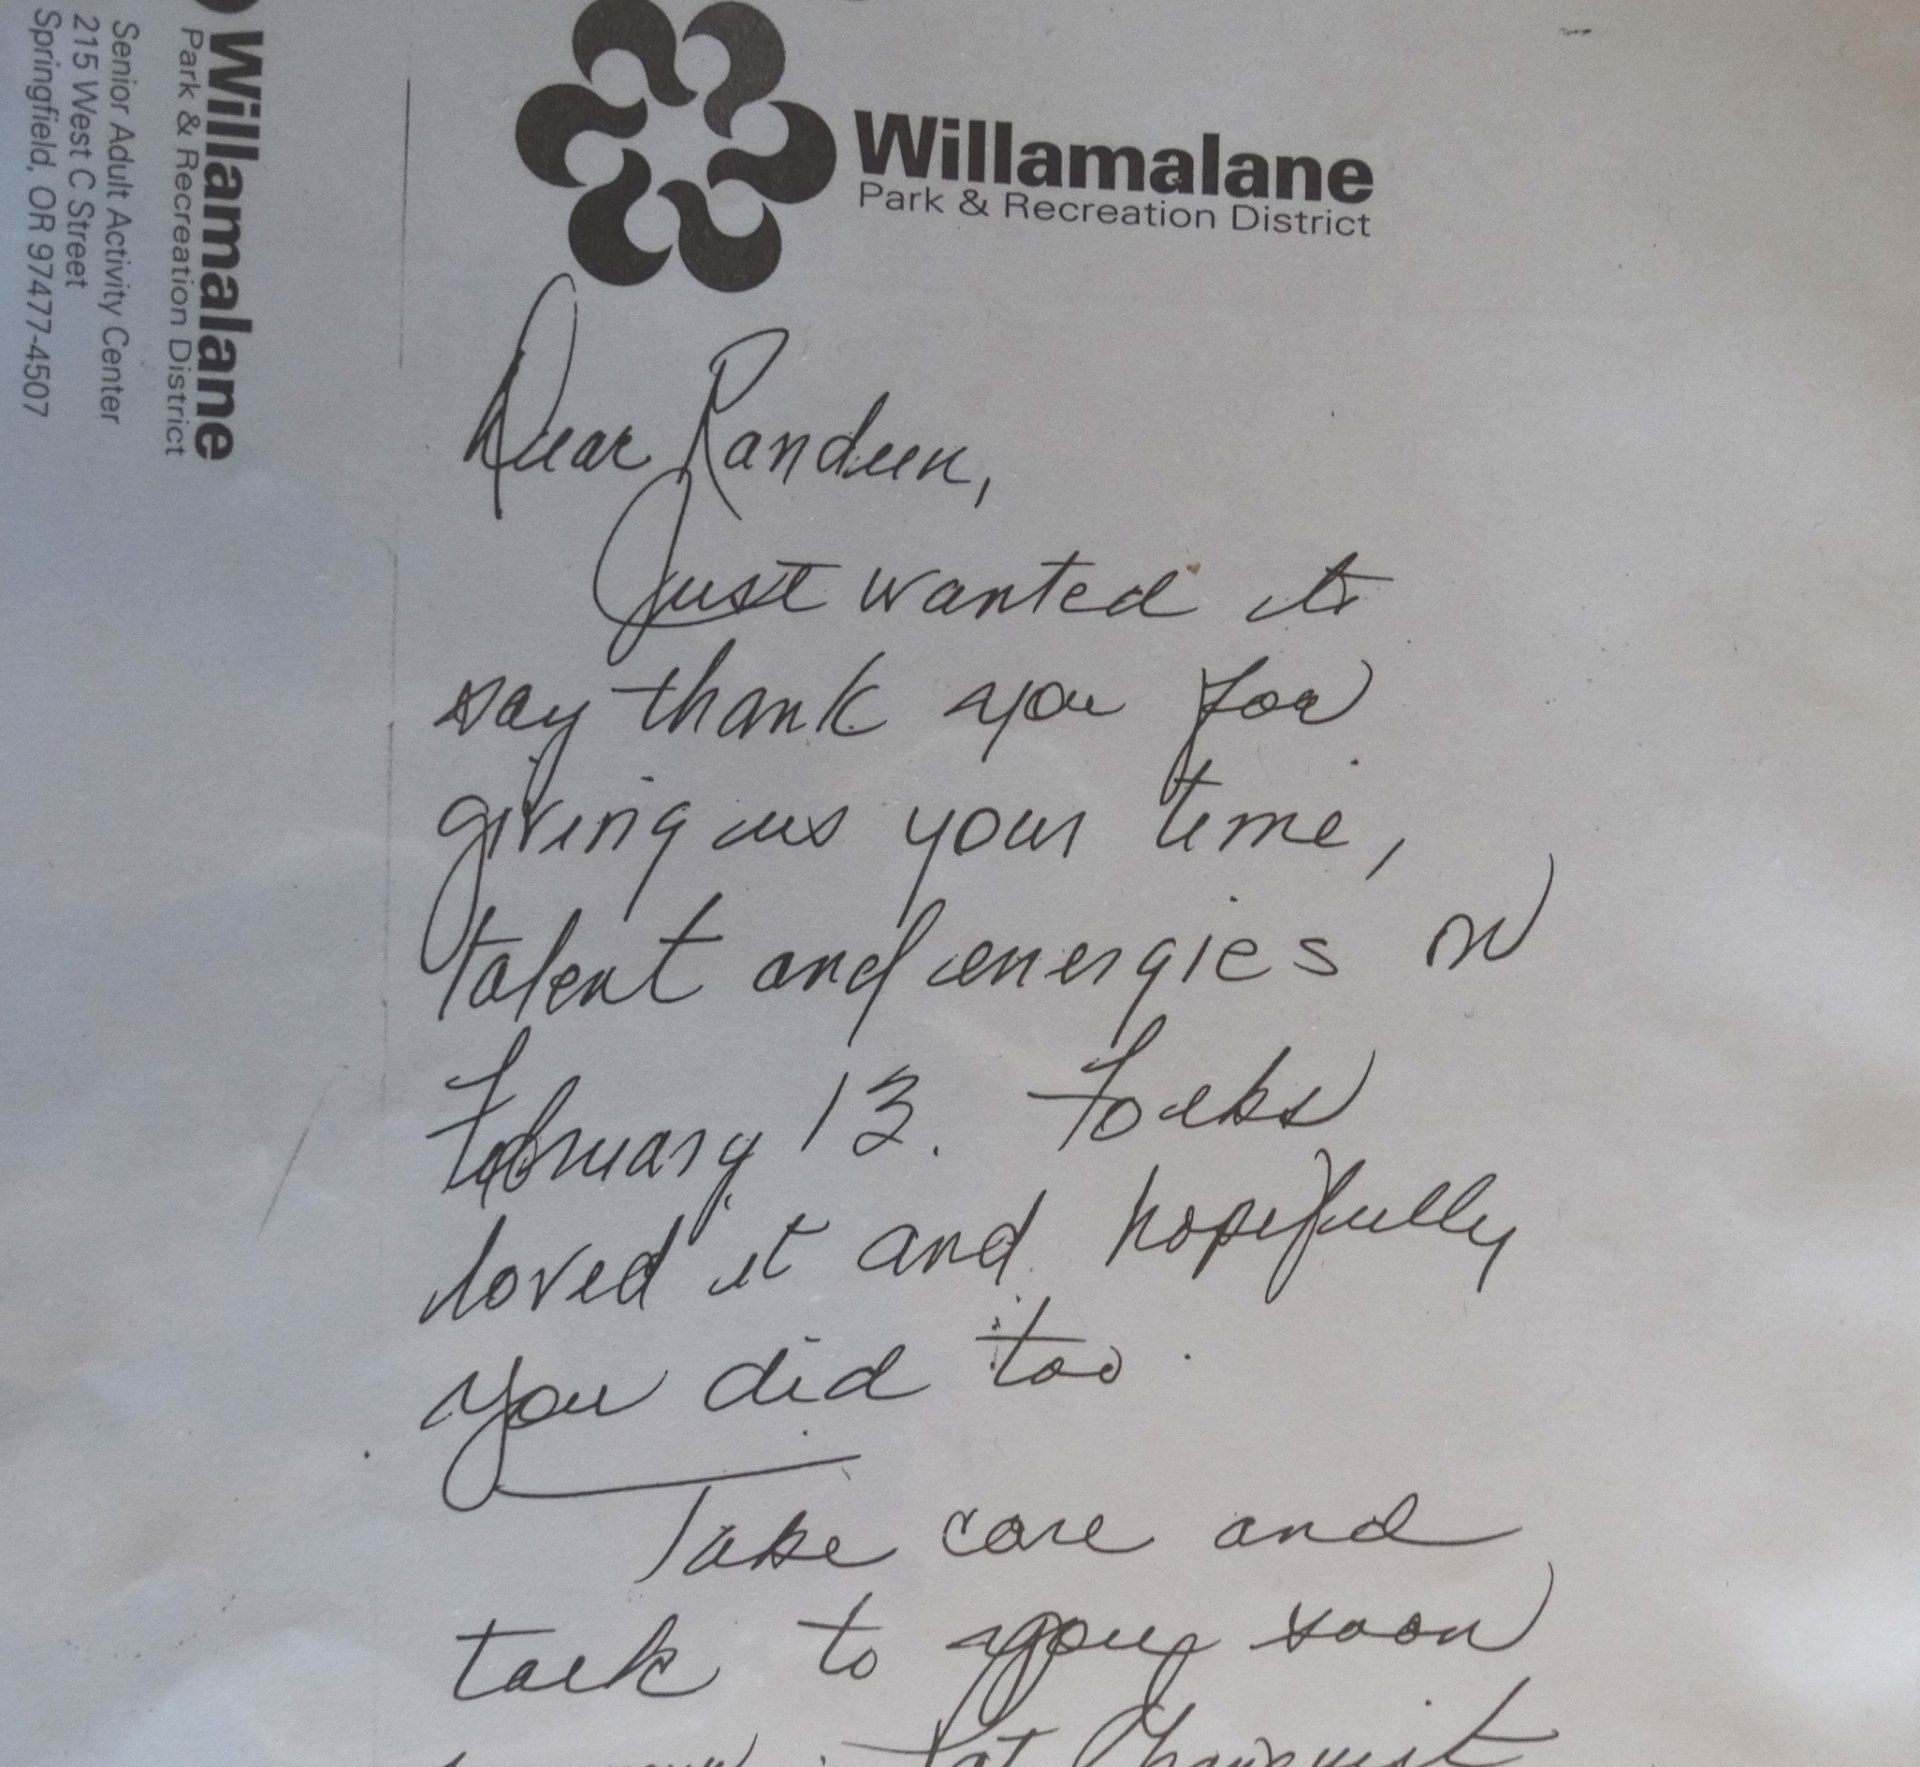 Willamalane
Park & Recreation District
Senior Adult Activity Center
215 West C Street
Springfield, OR 97477-4507
Willamalane
Park & Recreation District
Dear Randeen,
Just wanted to
say thank you for
giving us your time,
talent and energies on
February 13. Folks
loved it and hopefully
you did too.
Take care and
talk to you soon
Pat